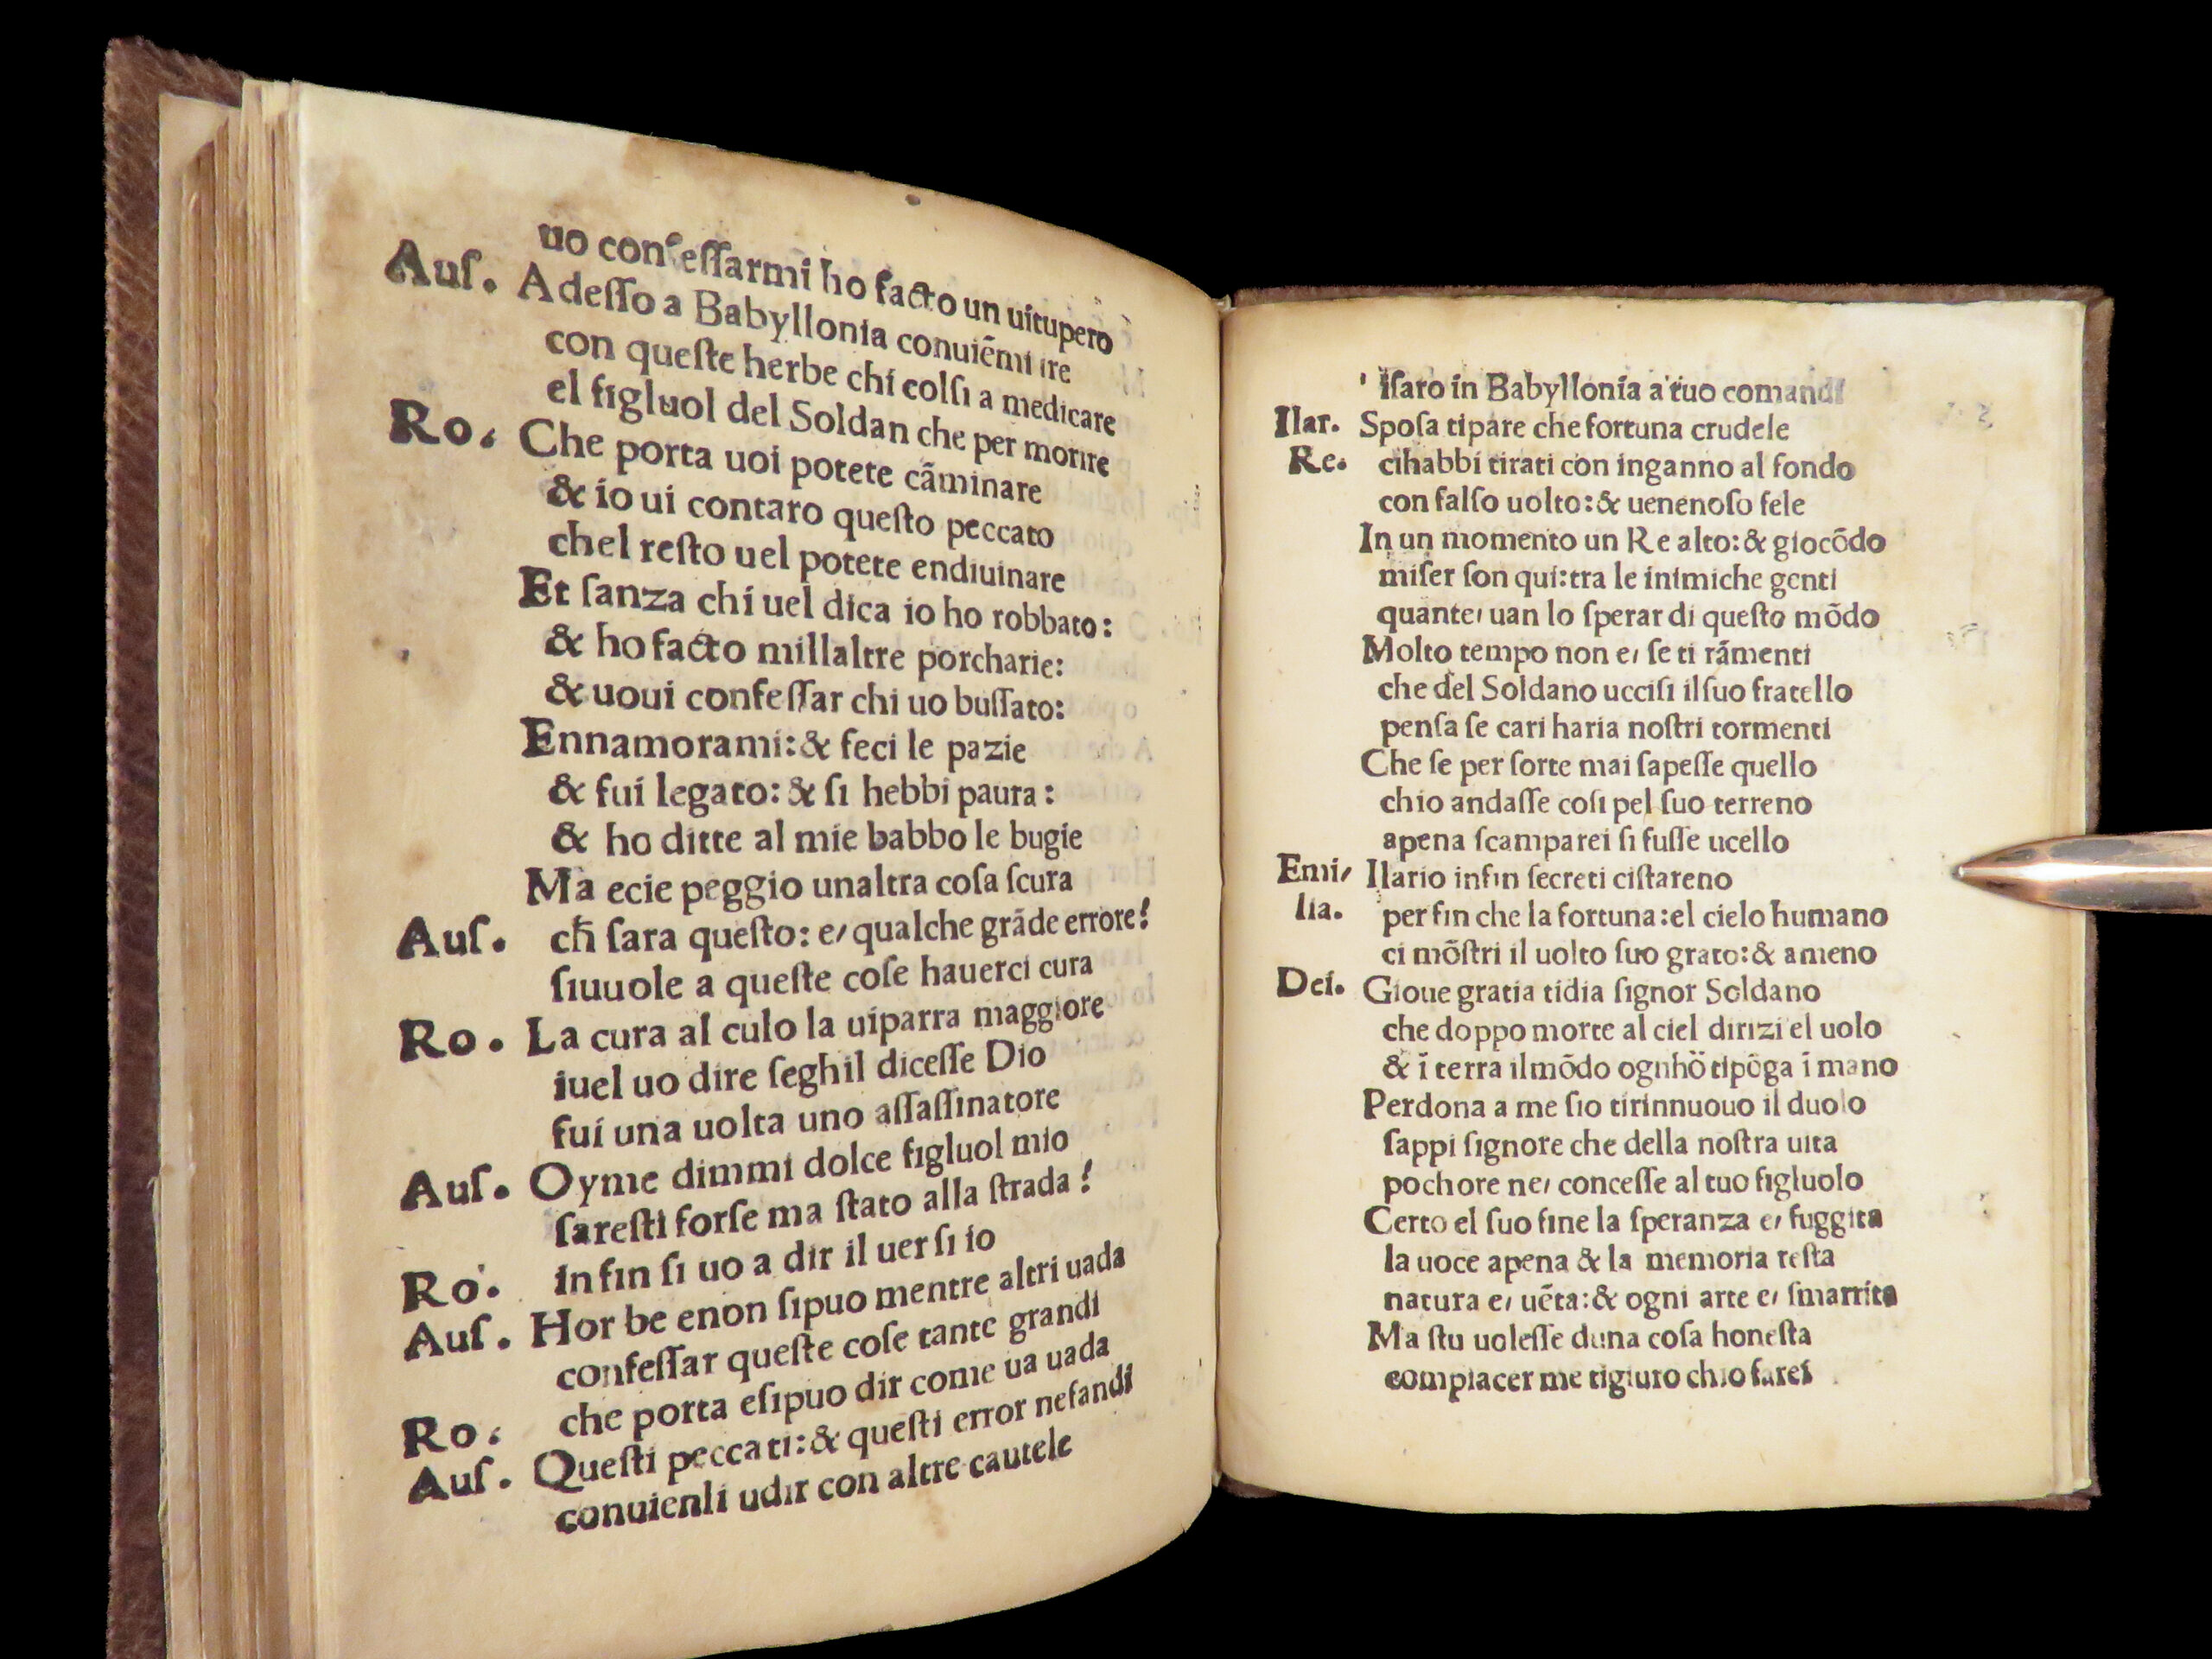 uo confeſſarmi ho facto un uitupero
Auſ. Adeſſo a Babyllonia conuiẽmi ire
con queſte herbe chi colſi a medicare
el figluol del Soldan che per morire
Ro. Che porta uoi potete cãminare
& io ui contaro queſto peccato
chel reſto uel potete endiuinare
Et ſanza chi uel dica io ho robbato:
& ho facto millaltre porcharie:
& uoui confeſſar chi uo buſſato:
Ennamorami:& feci le pazie
& fui legato:& ſi hebbi paura :
& ho ditte al mie babbo le bugie
Ma ecie peggio unaltra coſa ſcura
Auſ. ch̃ ſara queſto: e, qualche grãde errore?
ſiuuole a queſte coſe hauerci cura
Ro. La cura al culo la uiparra maggiore
iuel uo dire ſeghil diceſſe Dio
fui una uolta uno aſſaſſinatore
Auſ. Oyme dimmi dolce figluol mio
ſareſti forſe ma ſtato alla ſtrada ?
Ro. in fin ſi uo a dir il uer ſi io
Auſ. Hor be enon ſipuo mentre altri uada
confeſſar queſte coſe tante grandi
Ro. che porta eſipuo dir come ua uada
Auſ. Queſti peccati:& queſti error nefandi
conuienli udir con altre cautele
iſaro in Babyllonia a tuo comandi
Ilar. Spoſa tipare che fortuna crudele
Re. cihabbi tirati con inganno al fondo
con falſo uolto:& uenenoſo fele
In un momento un Re alto:& giocõdo
miſer ſon qui:tra le inimiche genti
quante, uan lo ſperar di queſto mõdo
Molto tempo non e, ſe ti rãmenti
che del Soldano ucciſi ilſuo fratello
penſa ſe cari haria noſtri tormenti
Che ſe per ſorte mai ſapeſſe quello
chio andaſſe coſi pel ſuo terreno
apena ſcamparei ſi fuſſe ucello
Emi, Ilario infin ſecreti ciſtareno
lia. per fin che la fortuna:el cielo humano
ci mõſtri il uolto ſuo grato:& ameno
Dei. Gioue gratia tidia ſignor Soldano
che doppo morte al ciel dirizi el uolo
& ĩ terra ilmõdo ognhõ tipõga ĩ mano
Perdona a me ſio tirinnuouo il duolo
ſappi ſignore che della noſtra uita
pochore ne, conceſſe al tuo figluolo
Certo el ſuo fine la ſperanza e, fuggita
la uoce apena & la memoria reſta
natura e, uẽta:& ogni arte e, ſmarrita
Ma ſtu uoleſſe duna coſa honeſta
compiacer me tigiuro chio farei